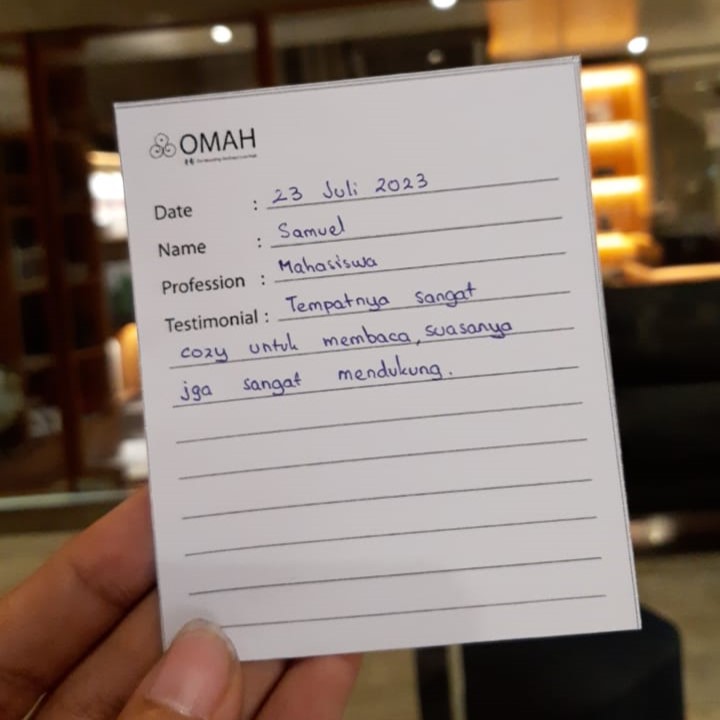 OMAH
Date : 23 Juli 2023
Name : Samuel
Profession : Mahasiswa
Testimonial : Tempatnya sangat
cozy untuk membaca, suasanya
jga sangat mendukung.